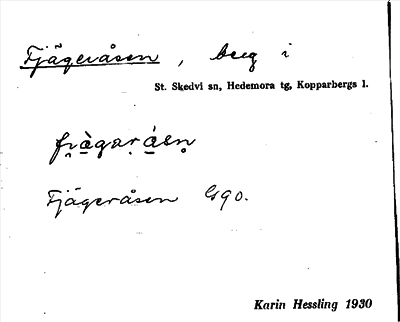 Fjägeråsen, berg i
St. Skedvi sn, Hedemora tg, Kopparbergs l.
Fjägeråsen
Karin Hessling 1930